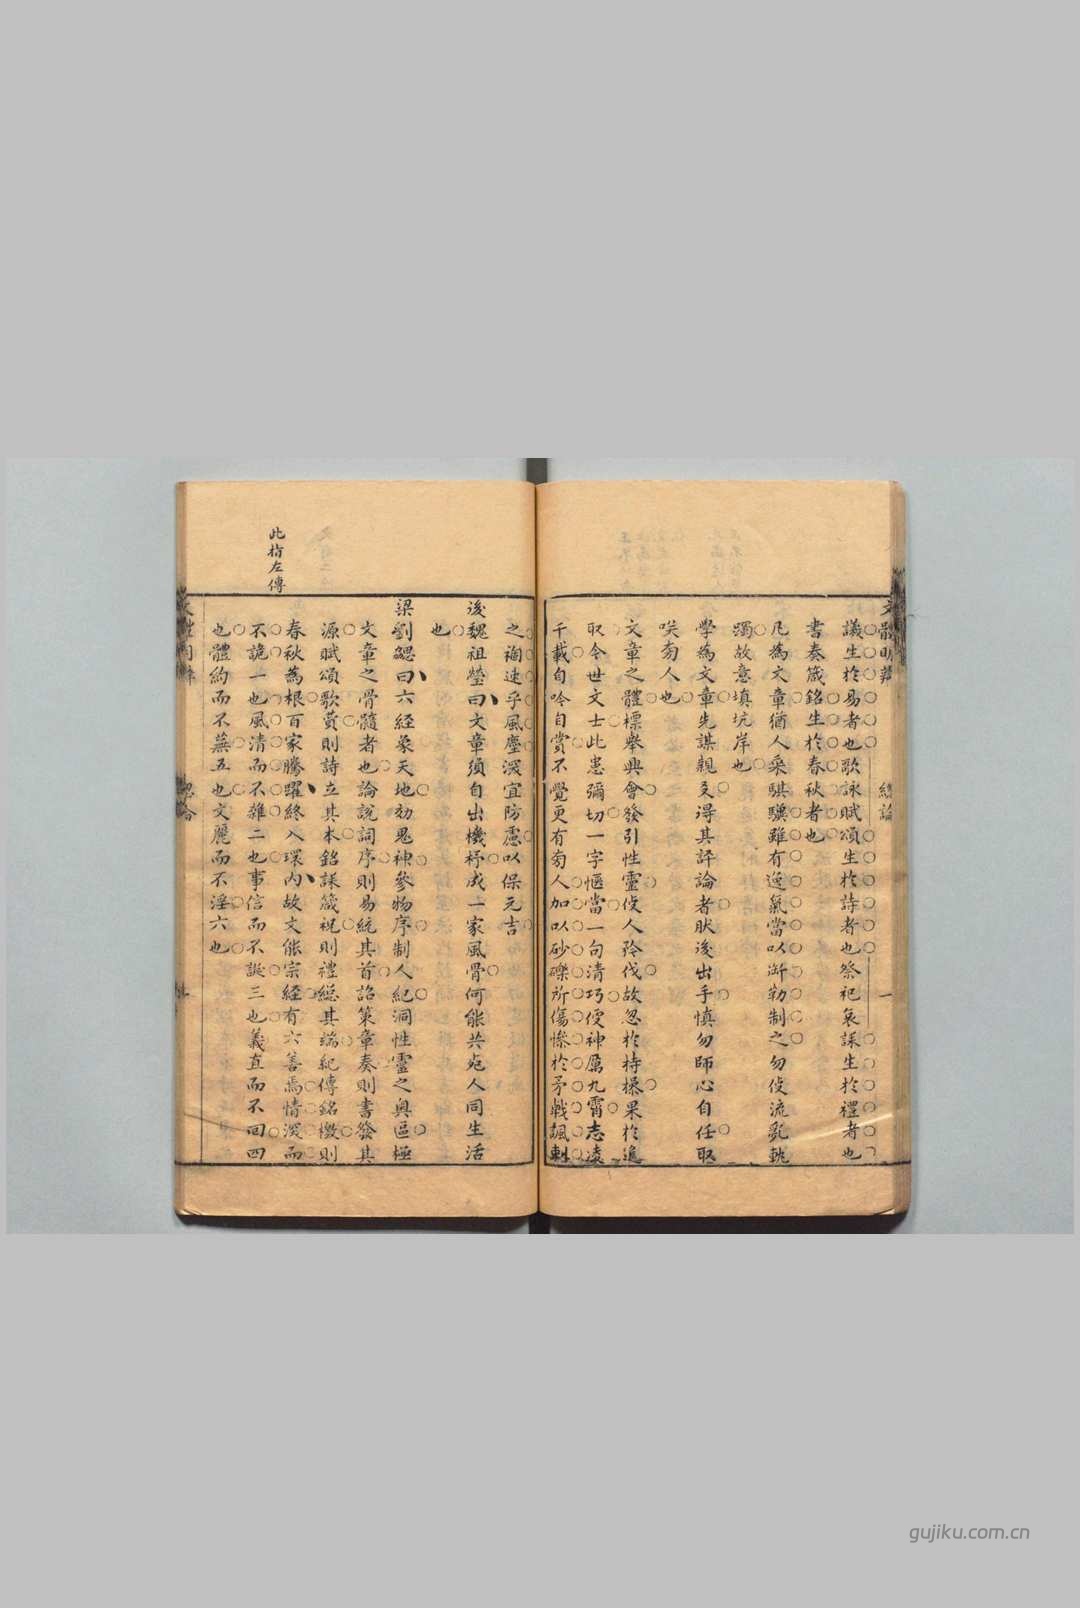 文體明辨 總論 一
議生於易者也歌詠賦頌生於詩者也祭祀哀誄生於禮者也
書奏箴銘生於春秋者也
凡為文章猶人乘騏驥雖有逸氣當以銜勒制之勿使流亂軌
躅故意填坑岸也
學為文章先謀親友得其評論者然後出手慎勿師心自任取
笑旁人也
文章之體標舉興會發引性靈使人矜伐故忽於持操果於進
取今世文士此患彌切一字愜當一句清巧便神厲九霄志凌
千載自吟自賞不覺更有旁人加以砂礫所傷慘於矛戟諷刺
之禍速乎風塵深宜防慮以保元吉
後魏祖瑩曰文章須自出機杼成一家風骨何能共宛人同生活
也
梁劉勰曰六經象天地効鬼神參物序制人紀洞性靈之奥區極
文章之骨髓者也論說詞序則易統其首詔策章奏則書發其
源賦頌歌贊則詩立其本銘誄箴祝則禮總其端紀傳銘檄則
此指左傳
春秋為根百家騰躍終入環內故文能宗經有六善焉情深而
不詭一也風清而不雜二也事信而不誕三也義直而不回四
也體約而不蕪五也文麗而不淫六也
gujiku.com.cn